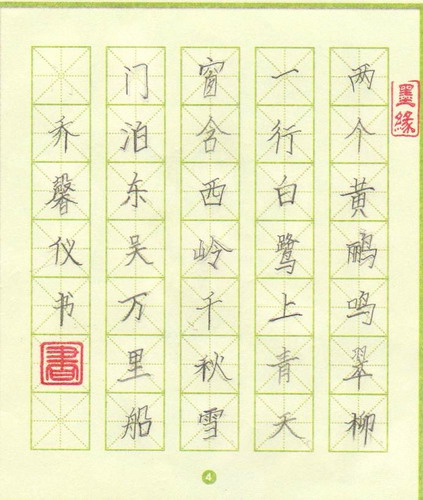 墨缘
两个黄鹂鸣翠柳
一行白鹭上青天
窗含西岭千秋雪
门泊东吴万里船
乔馨仪书
書
4